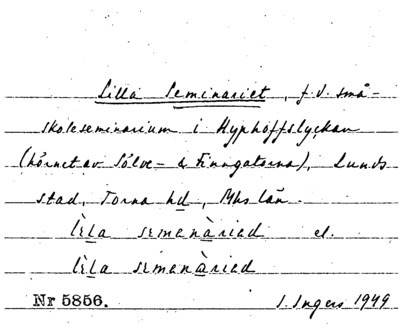 Lilla Seminariet, f.d. små-
skoleseminarium i Hyphoffslyckan
(hörnet av Sölve- & Finngatorna), Lunds
stad, Torna hd, Mhs län.
lìla semenàried el.
lìla semenàried
Nr 5856. I. Ingers 1949